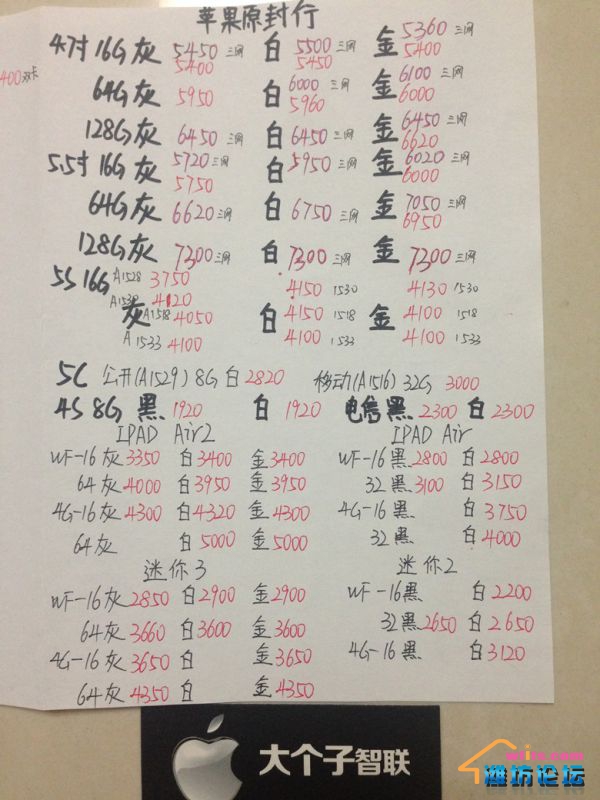 苹果原封行
4.7寸 16G 灰 5450 三网 白 5500 三网 金 5360 三网
5400 5450 5400
400双卡
64G 灰 5950 白 6000 三网 金 6100 三网
5960 6000
128G 灰 6450 三网 白 6450 三网 金 6450 三网
6620
5.5寸 16G 灰 5720 三网 白 5950 三网 金 6020 三网
5750 6000
64G 灰 6620 三网 白 6750 三网 金 7050 三网
6950
128G 灰 7300 三网 白 7300 三网 金 7300 三网
5S 16G A1528 3750
灰 A1530 4120 白 4150 1530 金 4130 1530
A1518 4050 4150 1518 4100 1518
A1533 4100 4100 1533 4100 1533
5C 公开(A1529) 8G 白 2820 移动(A1516) 32G 3000
4S 8G 黑 1920 白 1920 电信黑 2300 白 2300
IPAD Air2 IPAD Air
WF-16 灰 3350 白 3400 金 3400 WF-16 黑 2800 白 2800
64 灰 4000 白 3950 金 3950 32 黑 3100 白 3150
4G-16 灰 4300 白 4320 金 4300 4G-16 黑 白 3750
64 灰 白 5000 金 5000 32 黑 白 4000
迷你3 迷你2
WF-16 灰 2850 白 2900 金 2900 WF-16 黑 白 2200
64 灰 3660 白 3600 金 3600 32 黑 2650 白 2650
4G-16 灰 3650 白 金 3650 4G-16 黑 白 3120
64 灰 4350 白 金 4350
大个子智联
潍坊论坛